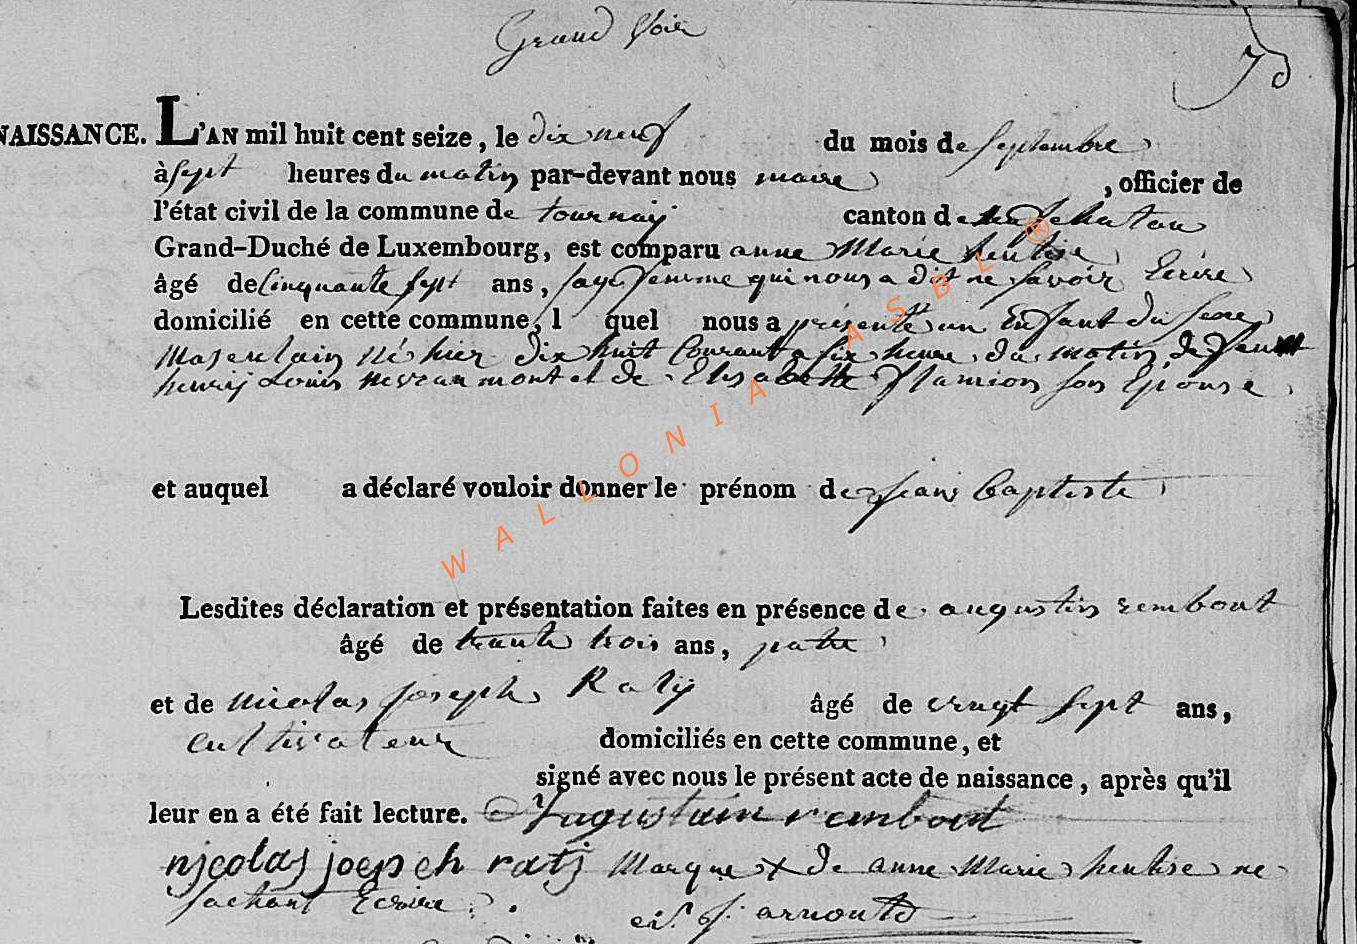 Grand Voir
70
NAISSANCE. L'AN mil huit cent seize, le dix neuf du mois de Septembre
à sept heures du matin par-devant nous maire, officier de
l'état civil de la commune de tournay canton de neufchatau
Grand-Duché de Luxembourg, est comparu anne Marie hentise
âgé de Cinquante sept ans, sage femme qui nous a dit ne savoir Ecrire
domicilié en cette commune, l quel nous a présenté un Enfant du sexe
Masculain né hier dix huit Courant a six heure du matin de
henrij Louis neveraumont et de Elisabette flamion son Epouse
et auquel a déclaré vouloir donner le prénom de jean baptiste
Lesdites déclaration et présentation faites en présence de augustin rembout
âgé de trente trois ans, patre
et de nicolas joseph Ratij âgé de vingt sept ans,
cultivateur domiciliés en cette commune, et
signé avec nous le présent acte de naissance, après qu'il
leur en a été fait lecture. Augustain rembout
njcolas joepsch ratj Marque x de anne Marie hentise ne
sachant Ecrire. arnould
WALLONIA ASBL ®